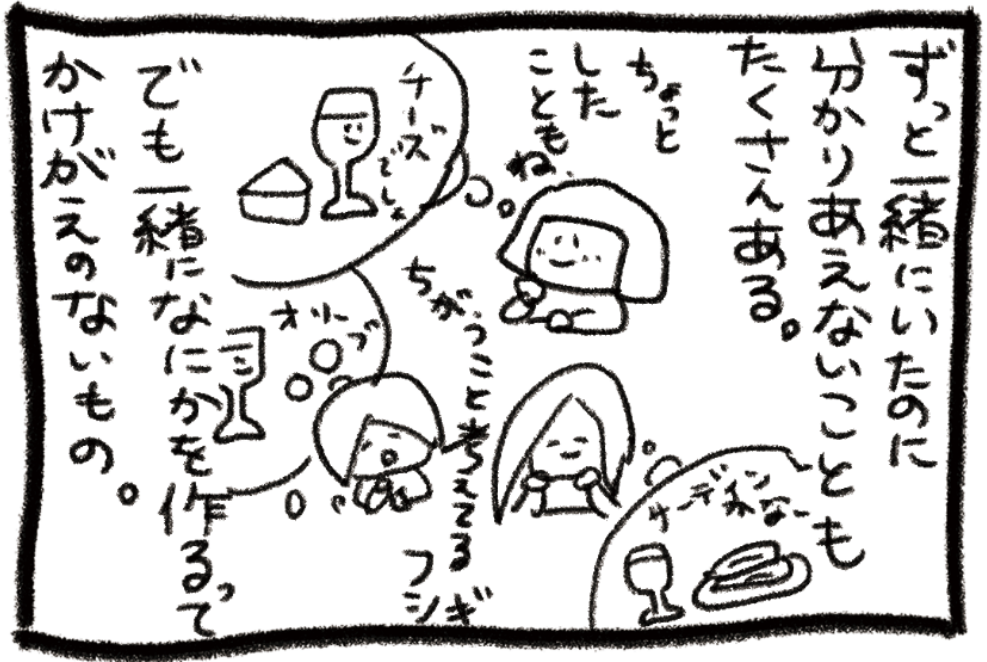 ずっと一緒にいたのに
分かりあえないことも
たくさんある。
ちょっと
した
ことも
ね、
チーズ
でしょ
ちがうこと考えてる
フシギ
オリーブ
サーディンかなー
でも一緒になにかを作るって
かけがえのないもの。